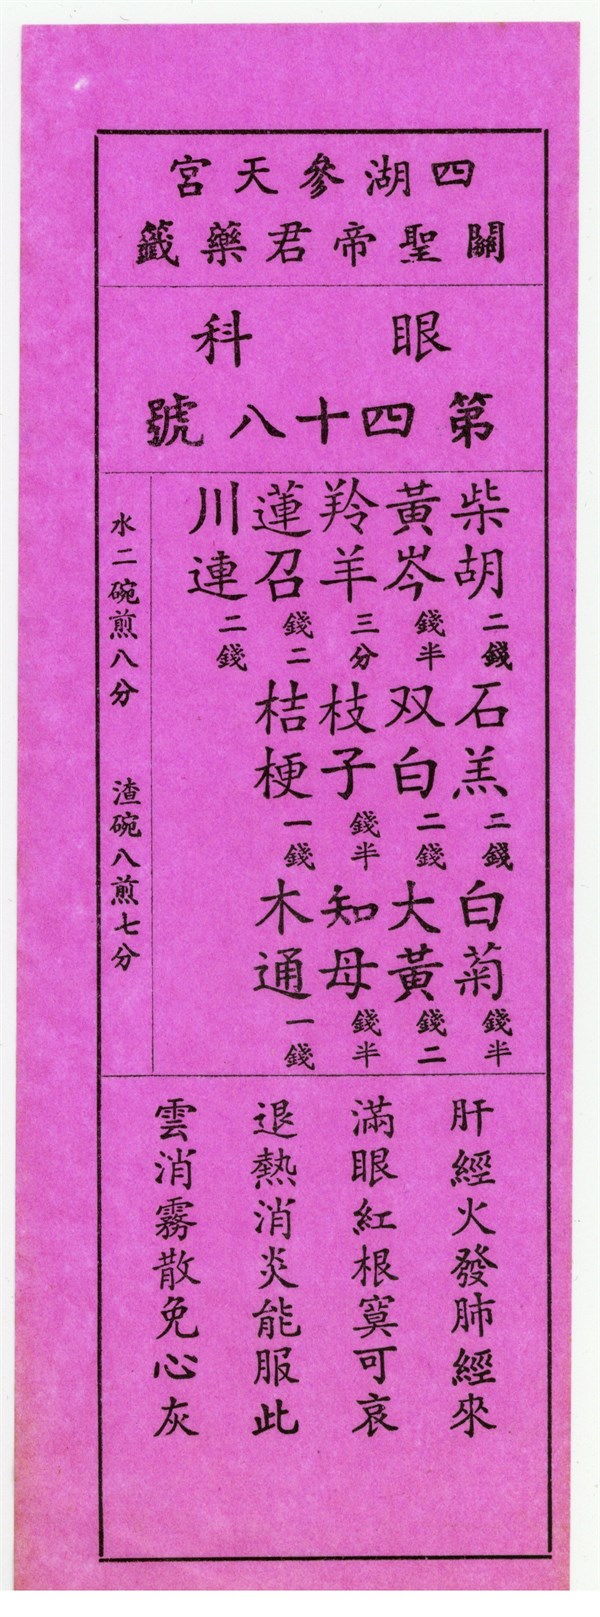 四湖參天宮
關聖帝君藥籤
眼科
第四十八號
柴胡二錢 石羔二錢 白菊錢半
黃岑錢半 双白二錢 大黃錢二
羚羊三分 枝子錢半 知母錢半
蓮召錢二 桔梗一錢 木通一錢
川連二錢
水二碗煎八分 渣碗八煎七分
肝經火發肺經來
滿眼紅根寞可哀
退熱消炎能服此
雲消霧散免心灰